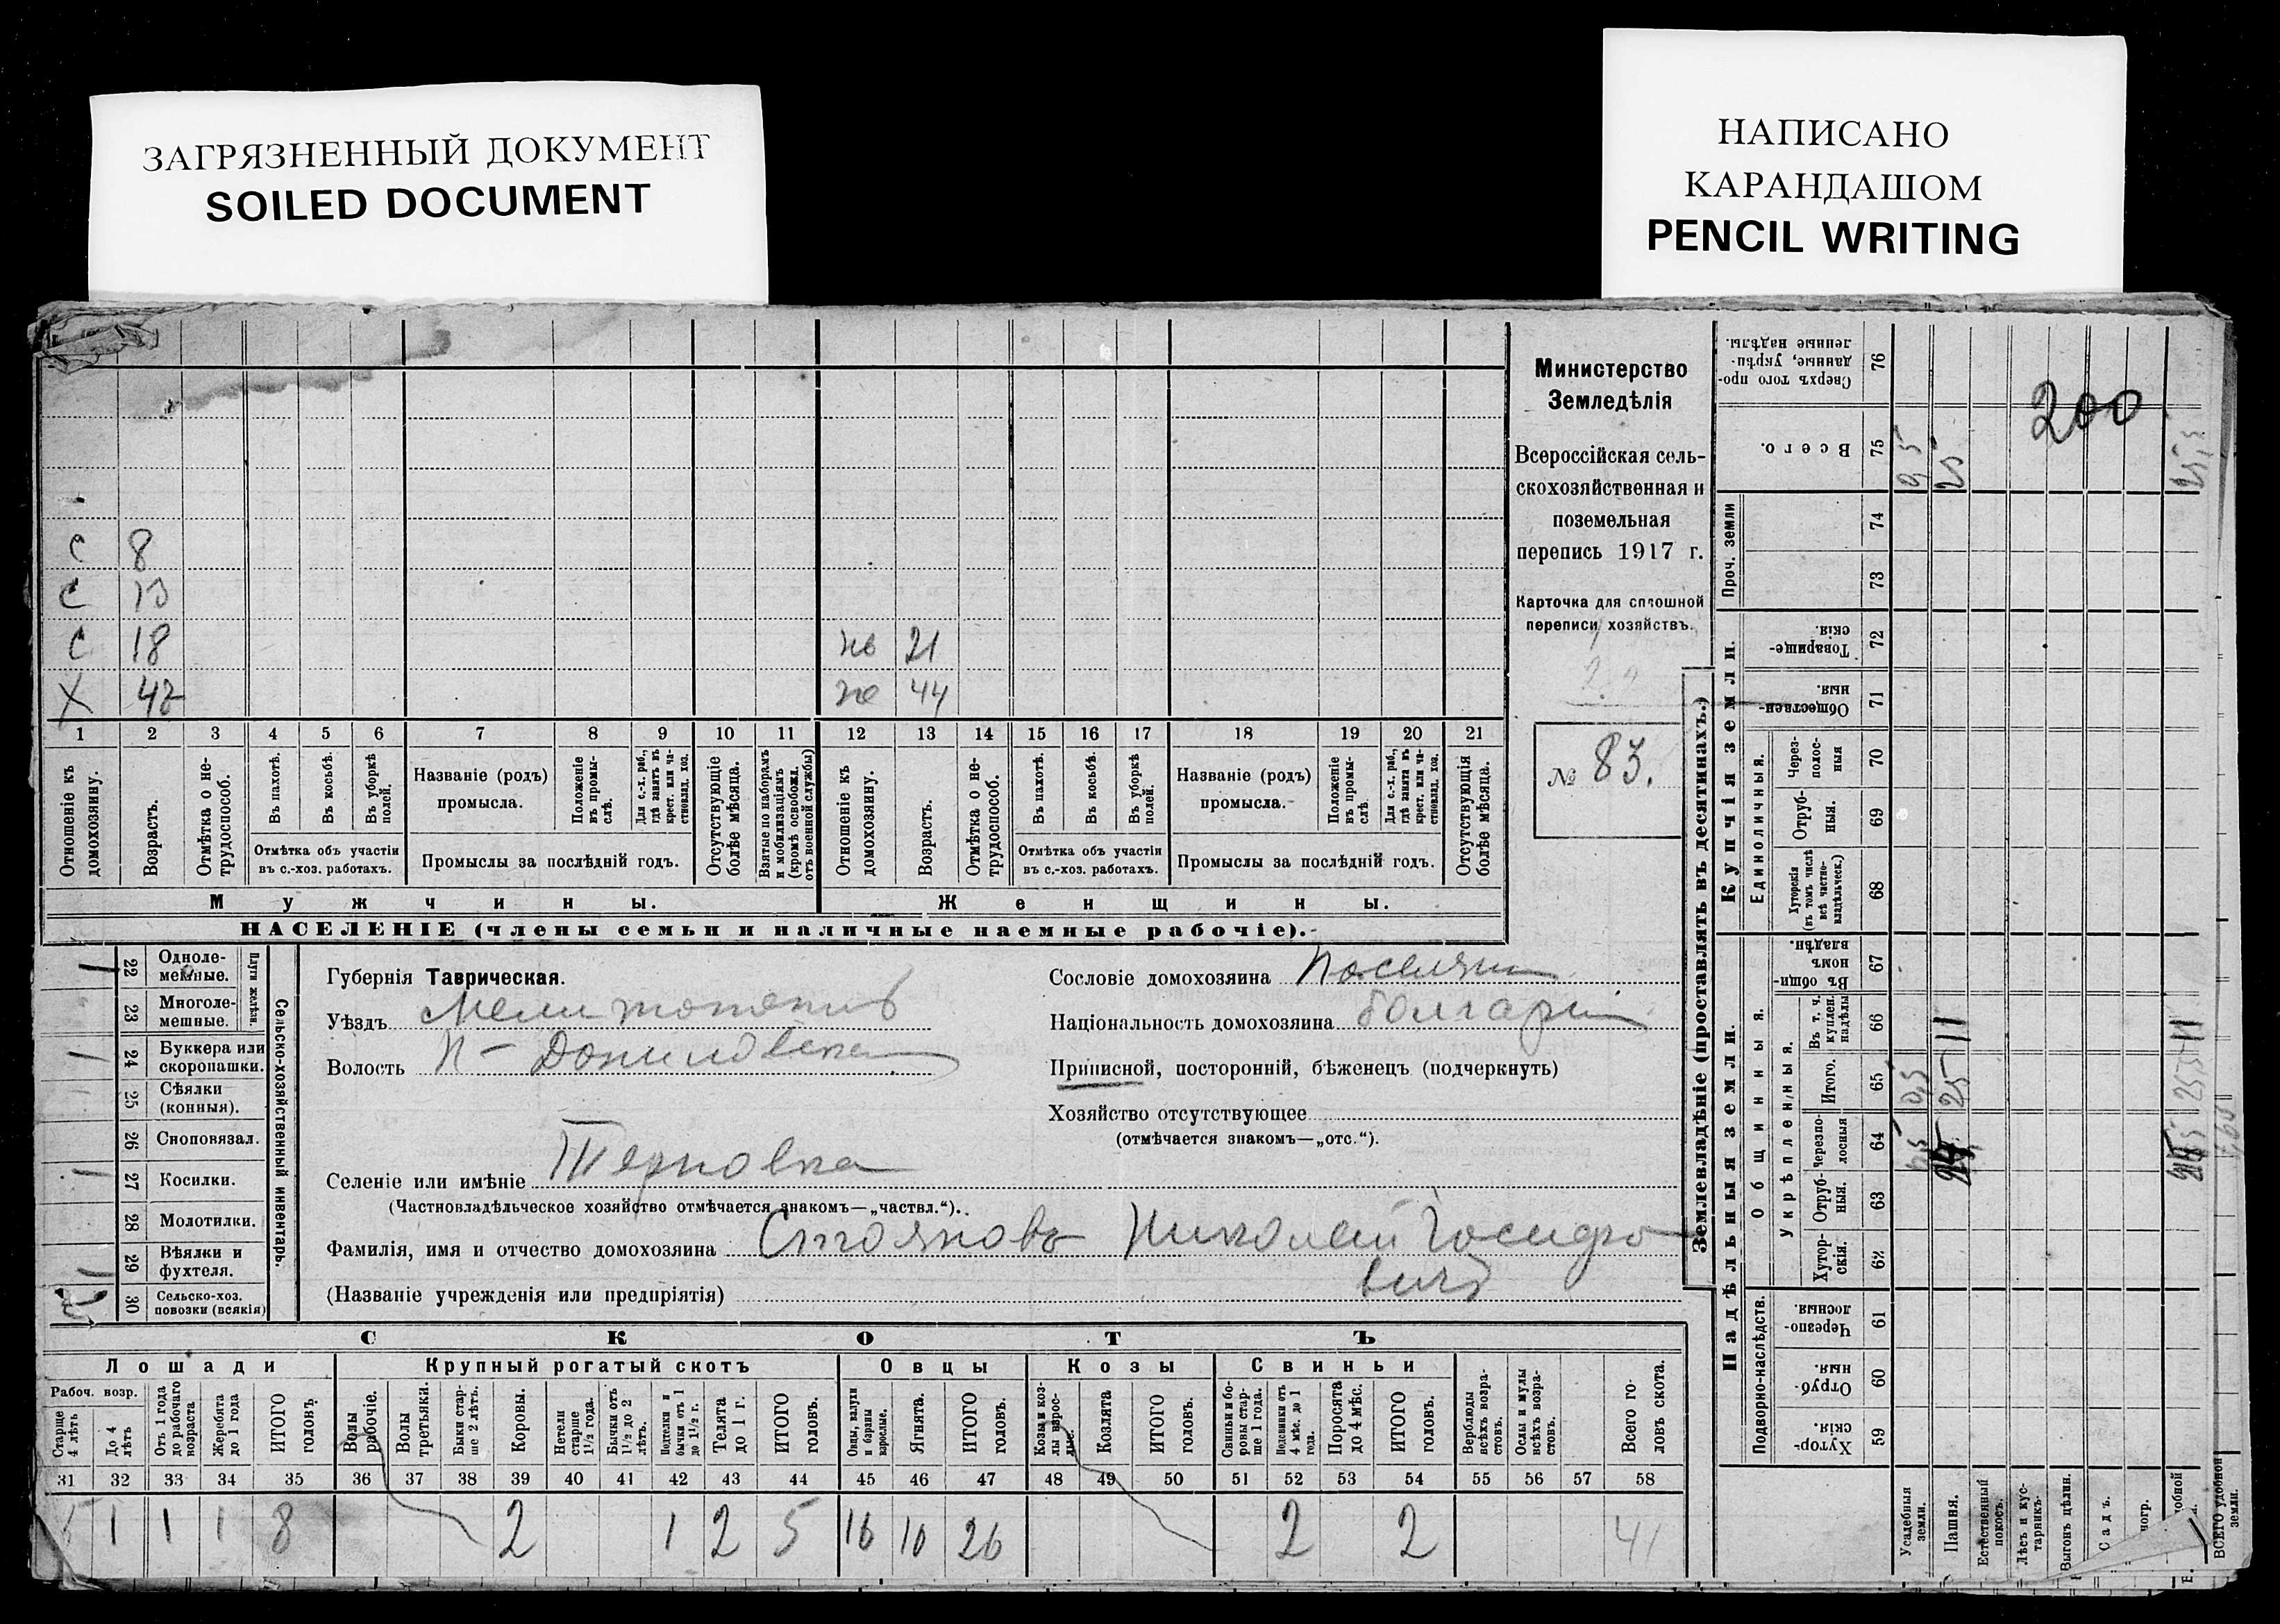 ЗАГРЯЗНЕННЫЙ ДОКУМЕНТ
SOILED DOCUMENT
НАПИСАНО
КАРАНДАШОМ
PENCIL WRITING
С 8
С 13
С 18
Х 42
ж 21
ж 44
1 2 3 4 5 6 7 8 9 10 11 12 13 14 15 16 17 18 19 20 21
Отношеніе къ домохозяину.
Возрастъ.
Отмѣтка о нетрудоспособ.
Въ пахотѣ.
Въ косьбѣ.
Въ уборкѣ полей.
Отмѣтка объ участіи
въ с.-хоз. работахъ.
Названіе (родъ)
промысла.
Положеніе въ промыслѣ.
Для с.-х. раб., гдѣ занятъ въ крест. или частновлад. хоз.
Промыслы за послѣдній годъ.
Отсутствующіе болѣе мѣсяца.
Взятые по наборамъ и мобилизаціямъ (кромѣ освобожд. отъ военной службы)
Отношеніе къ домохозяину.
Возрастъ.
Отмѣтка о нетрудоспособ.
Въ пахотѣ.
Въ косьбѣ.
Въ уборкѣ полей.
Отмѣтка объ участіи
въ с.-хоз. работахъ.
Названіе (родъ)
промысла.
Положеніе въ промыслѣ.
Для с.-х. раб., гдѣ занята въ крест. или частновлад. хоз.
Промыслы за послѣдній годъ.
Отсутствующія болѣе мѣсяца.
Мужчины.
Женщины.
НАСЕЛЕНІЕ (члены семьи и наличные наемные рабочіе).
Министерство
Земледѣлія
Всероссійская сель-
скохозяйственная и
поземельная
перепись 1917 г.
Карточка для сплошной
переписи хозяйствъ.
№ 83.
22 Одноле-
мешные.
23 Многоле-
мешные.
Плуги желѣзн.
24 Буккера или
скоропашки.
25 Сѣялки
(конныя).
26 Сноповязал.
27 Косилки.
28 Молотилки.
29 Вѣялки и
фухтеля.
30 Сельско-хоз.
повозки (всякія)
Сельско-хозяйственный инвентарь.
Губернія Таврическая.
Уѣздъ Мелитопопив
Волость Н- Даниловска
Селеніе или имѣніе Терновка
(Частновладѣльческое хозяйство отмѣчается знакомъ—„частвл.“).
Фамилія, имя и отчество домохозяина Стояновъ Николай Іосифо
вичъ
(Названіе учрежденія или предпріятія)
Сословіе домохозяина Поселянин
Національность домохозяина болгарин
Приписной, посторонній, бѣженецъ (подчеркнуть)
Хозяйство отсутствующее
(отмѣчается знакомъ—„отс.“).
СКОТЪ
Лошади
Крупный рогатый скотъ
Овцы
Козы
Свиньи
Рабоч. возр.
Старше 4 лѣтъ
До 4 лѣтъ
Отъ 1 года до рабочаго возраста
Жеребята до 1 года
ИТОГО головъ
Волы рабочіе.
Волы третьяки.
Быки старше 2 лѣтъ.
Коровы.
Нетели старше 1½ года.
Бычки отъ 1½ до 2 лѣтъ.
Подтелки и бычки отъ 1 до 1½ г.
Телята до 1 г.
ИТОГО головъ.
Овцы, валухи и бараны взрослые.
Ягнята.
ИТОГО головъ.
Козы и козлы взрослые.
Козлята
ИТОГО головъ.
Свиньи и боровы старше 1 года.
Подсвинки отъ 4 мѣс. до 1 года.
Поросята до 4 мѣс.
ИТОГО головъ.
Верблюды всѣхъ возрастовъ.
Ослы и мулы всѣхъ возрастовъ.
Всего головъ скота.
31 32 33 34 35 36 37 38 39 40 41 42 43 44 45 46 47 48 49 50 51 52 53 54 55 56 57 58
1 1 1 8 2 1 2 5 16 10 26 2 2 41
Землевладѣніе (проставлять въ десятинахъ.)
Купчія земли.
Надѣльныя земли.
Сверхъ того проданные, укрѣпленные надѣлы. 76
Всего. 75
Проч. земли
74
73
Товарищескія. 72
Общественныя. 71
Единоличныя.
Черезполосныя 70
Отрубныя. 69
Хуторскія (въ томъ числѣ всѣ частновладѣльческ.) 68
Общинныя.
Въ общинномъ владѣн. 67
Укрѣпленныя.
Въ т. ч. куплен. надѣлы 66
Итого. 65
Черезполосныя 64
Отрубныя. 63
Хуторскія. 62
Подворно-наслѣдств.
Черезполосныя. 61
Отрубныя. 60
Хуторскія 59
Усадебныя земли.
Пашня.
Естественный покосъ.
Лѣсъ и кустарникъ.
Выгонъ дѣлин.
Садъ.
ВСЕГО удобной земли.
200
0,5
25
25,5
0,5
25